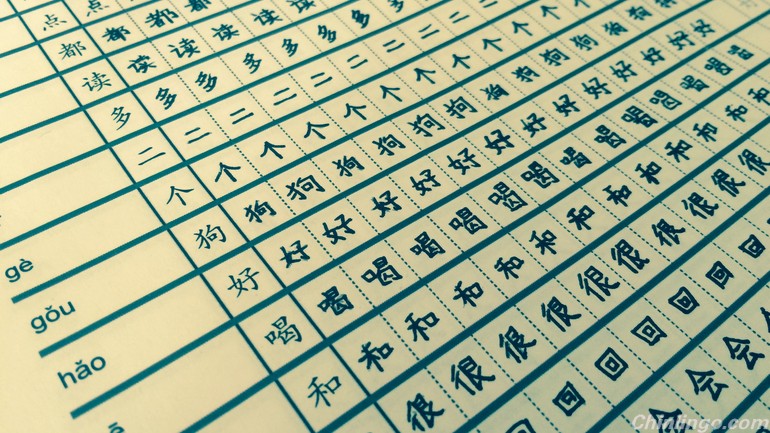 点 点 点
都 都 都 都 都
读 读 读 读 读 读 读 读
多 多 多 多 多 多 多 多 多 多
二 二 二 二 二 二 二 二 二 二 二
gè 个 个 个 个 个 个 个 个 个 个 个
gǒu 狗 狗 狗 狗 狗 狗 狗 狗 狗 狗 狗 狗 狗
hǎo 好 好 好 好 好 好 好 好 好 好 好 好 好 好
喝 喝 喝 喝 喝 喝 喝 喝 喝 喝 喝 喝 喝 喝
和 和 和 和 和 和 和 和 和 和 和 和 和
很 很 很 很 很 很 很 很 很 很
回 回 回 回 回 回
会 会 会
Chinlingo.com